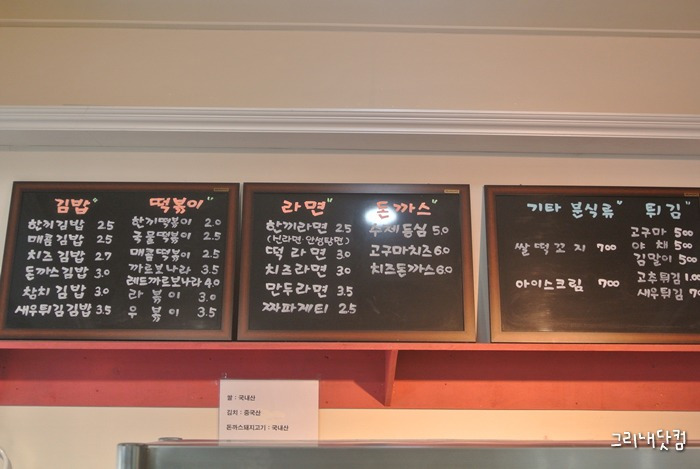 김밥
한끼김밥 2.5
매콤김밥 2.5
치즈김밥 2.7
돈까스김밥 3.0
참치김밥 3.0
새우튀김김밥 3.5
떡볶이
한끼떡볶이 2.0
국물떡볶이 2.5
매콤떡볶이 2.5
까르보나라 3.5
레드까르보나라 4.0
라볶이 3.0
우볶이 3.5
라면
한끼라면 2.5
(신라면·안성탕면)
떡라면 3.0
치즈라면 3.0
만두라면 3.5
짜파게티 2.5
돈까스
수제등심 5.0
고구마치즈 6.0
치즈돈까스 6.0
기타 분식류
쌀떡꼬지 700
아이스크림 700
튀김
고구마 500
야채 500
김말이 500
고추튀김 1.00
새우튀김 70
쌀 : 국내산
김치 : 중국산
돈까스돼지고기 : 국내산
그리내닷컴